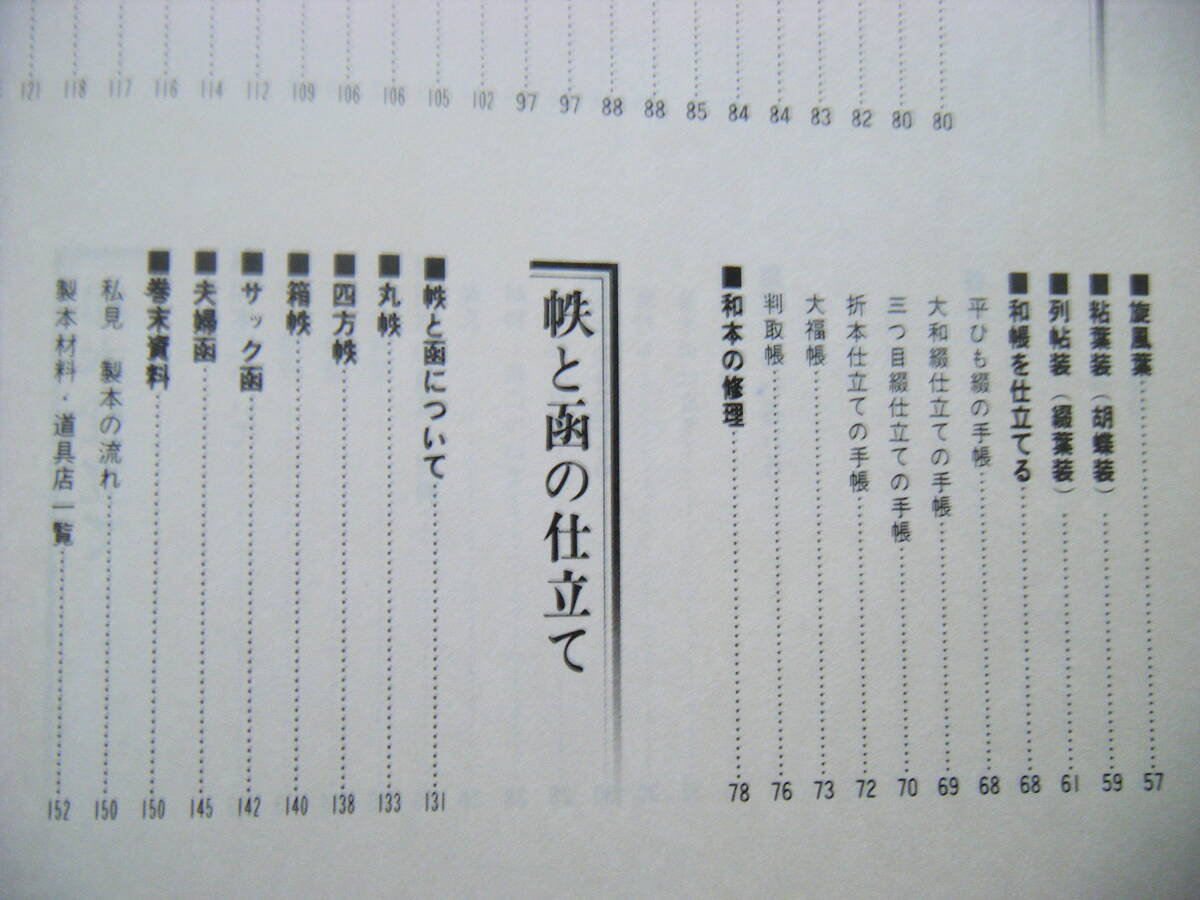 80
80
82
83
84
84
85
88
88
97
97
102
105
106
106
109
112
114
116
117
118
121
■旋風葉 57
■粘葉装(胡蝶装) 59
■列帖装(綴葉装) 61
■和帳を仕立てる 68
平ひも綴の手帳 68
大和綴仕立ての手帳 69
三つ目綴仕立ての手帳 70
折本仕立ての手帳 72
大福帳 73
判取帳 76
■和本の修理 78
帙と函の仕立て
■帙と函について 131
■丸帙 133
■四方帙 138
■箱帙 140
■サック函 142
■夫婦函 145
■巻末資料 150
私見 製本の流れ 150
製本材料・道具店一覧 152